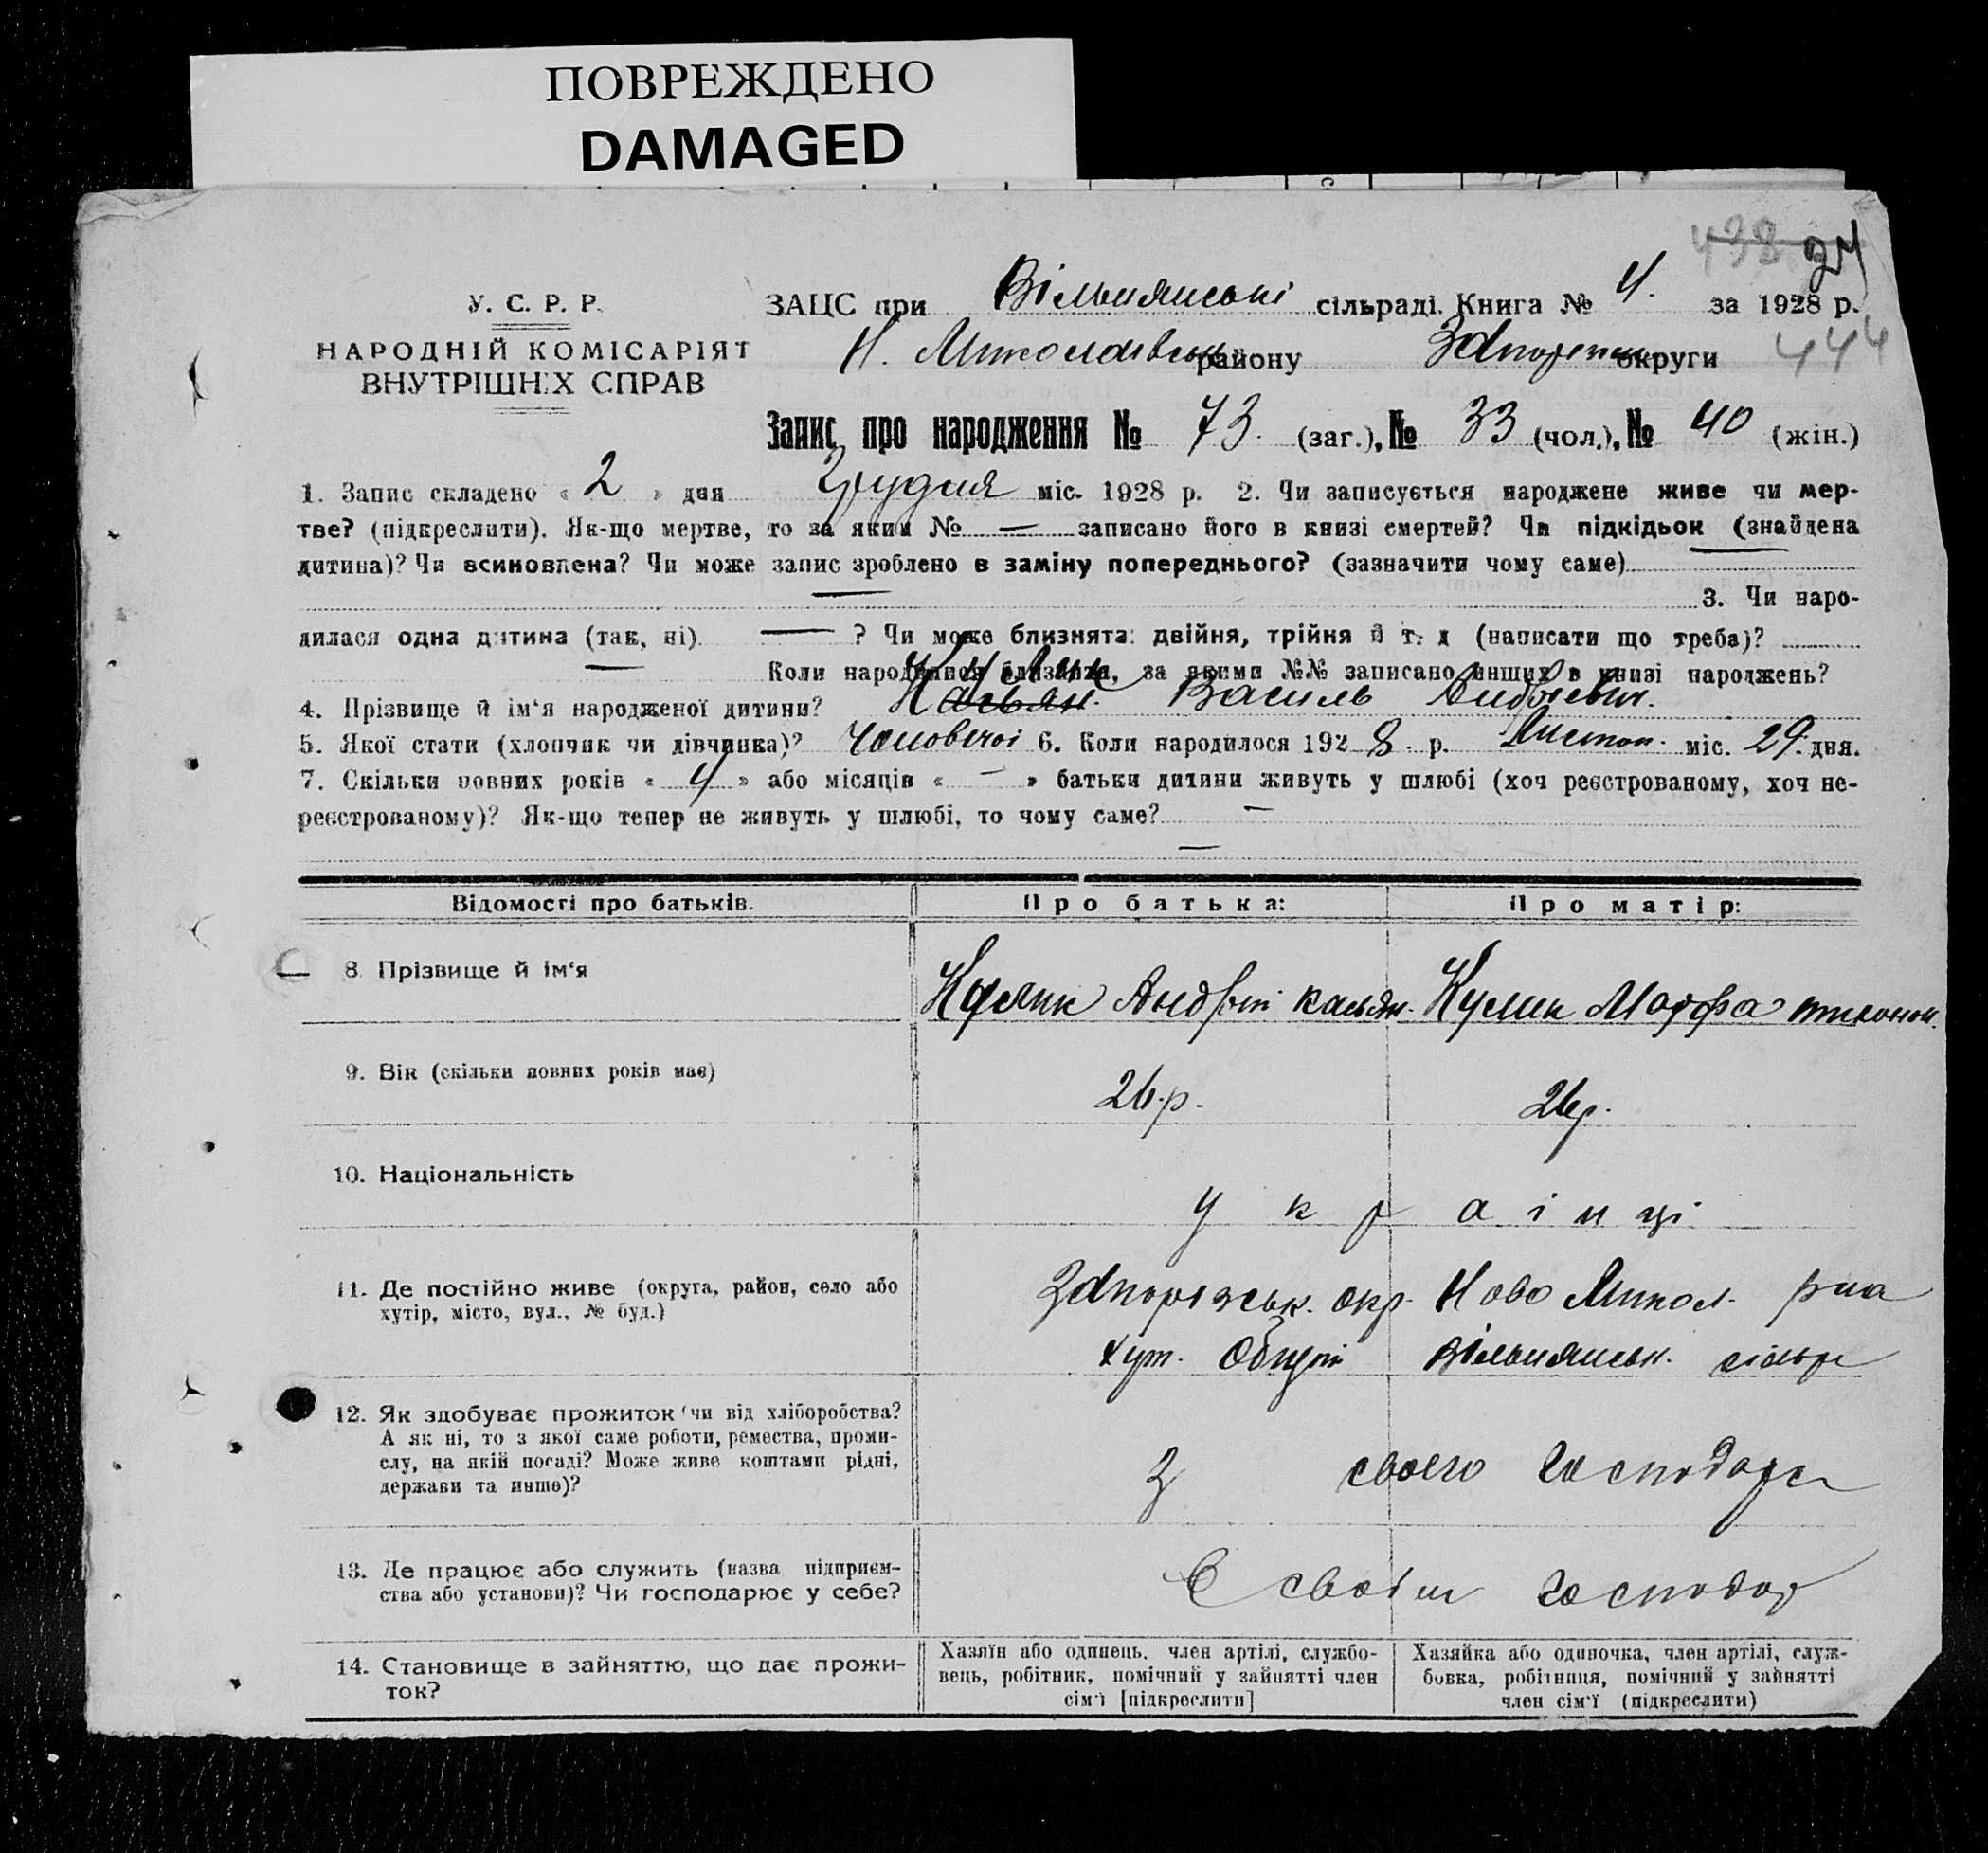 ПОВРЕЖДЕНО
DAMAGED
433 94
У. С. Р. Р.
НАРОДНІЙ КОМІСАРІЯТ
ВНУТРІШНІХ СПРАВ
ЗАЦС при Вільнянські сільраді. Книга № 4. за 1928 р.
Н. Миколаївськ району Запоріжськ округи 444
Запис про народження № 73. (заг.), № 33 (чол.), № 40 (жін.)
1. Запис складено « 2 » дня Грудня міс. 1928 р. 2. Чи записується народжене живе чи мер-
тве? (підкреслити). Як-що мертве, то за яким № — записано його в книзі смертей? Чи підкідьок (знайдена
дитина)? Чи всиновлена? Чи може запис зроблено в заміну попереднього? (зазначити чому саме) —
— 3. Чи наро-
дилася одна дитина (так, ні) — ? Чи може близнята: двійня, трійня й т. д (написати що треба)?
— Коли народилися близнята, за якими №№ записано инших в книзі народжень?
Кулик
4. Прізвище й ім‘я народженої дитини? Касьян. Василь Андрієвич.
5. Якої стати (хлопчик чи дівчинка)? Чоловічої 6. Коли народилося 192 8. р. Листоп. міс. 29. дня.
7. Скільки повних років « 4 » або місяців « — » батьки дитини живуть у шлюбі (хоч реєстрованому, хоч не-
реєстрованому)? Як-що тепер не живуть у шлюбі, то чому саме? —
—
Відомості про батьків. Про батька: Про матір:
8. Прізвище й ім‘я Кулик Андрій касьян. Кулик Марфа тихонов.
9. Вік (скільки повних років має) 26.р. 26р.
10. Національність українці
11. Де постійно живе (округа, район, село або
хутір, місто, вул., № буд.)
Запоріжськ. окр. Ново Микол. р на
хут. Общий Вільнянськ. сільр
12. Як здобуває прожиток (чи від хліборобства?
А як ні, то з якої саме роботи, ремества, проми-
слу, на якій посаді? Може живе коштами рідні,
держави та инше)?
З своего господарс
13. Де працює або служить (назва підприєм-
ства або установи)? Чи господарює у себе?
В своїм господар
14. Становище в зайняттю, що дає прожи-
ток?
Хазяїн або одинець, член артілі, службо-
вець, робітник, помічний у зайнятті член
сім‘ї [підкреслити]
Хазяйка або одиночка, член артілі, служ-
бовка, робітниця, помічний у зайнятті
член сім‘ї (підкреслити)